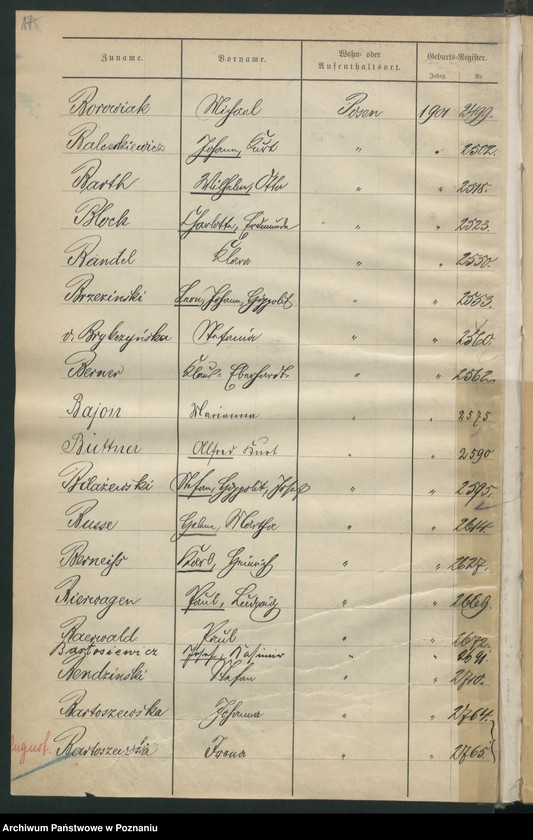 17
Zuname. Vorname. Wohn- oder Aufenthaltsort. Geburts-Register. Jahrg. Nr.
Borowiak Michael Posen 1901 2499.
Baleskiewicz Johann, Kurt " " 2502.
Barth Wilhelm, Otto " " 2518.
Block Charlotte, Erdmunde " " 2523.
Bandel Klara " " 2550.
Brzezinski Leon, Johann, Hippolit " " 2553.
v. Brykczyńska Stefania " " 2560.
Berner Klaus-Eberhardt " " 2562.
Bajon Marianna " " 2575
Büttner Alfred Kurt " " 2590
Bilażewski Stefan, Hippolit, Josef " " 2595.
Busse Helene, Martha " " 2614.
Berneiss Karl, Heinrich " " 2627.
Bierwagen Paul, Ludwig " " 2669.
Baerwald Paul " " 2672.
Bartosiewicz Josef, Kasimir " "
Bendzinski Stefan " " 2710.
Bartoszewska Johanna " " 2764.
Bartoszewska Irena " " 2765.
Archiwum Państwowe w Poznaniu